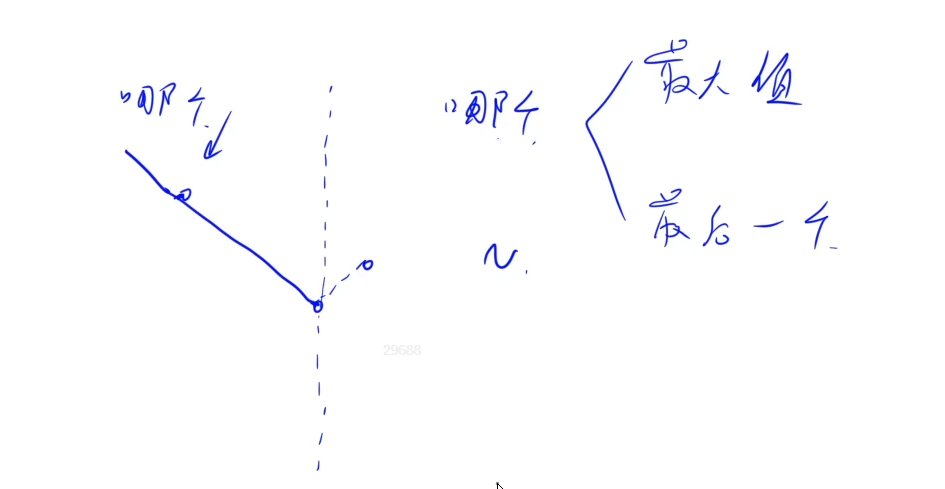 “哪个
“哪个
最大值
最后一个
N
29688